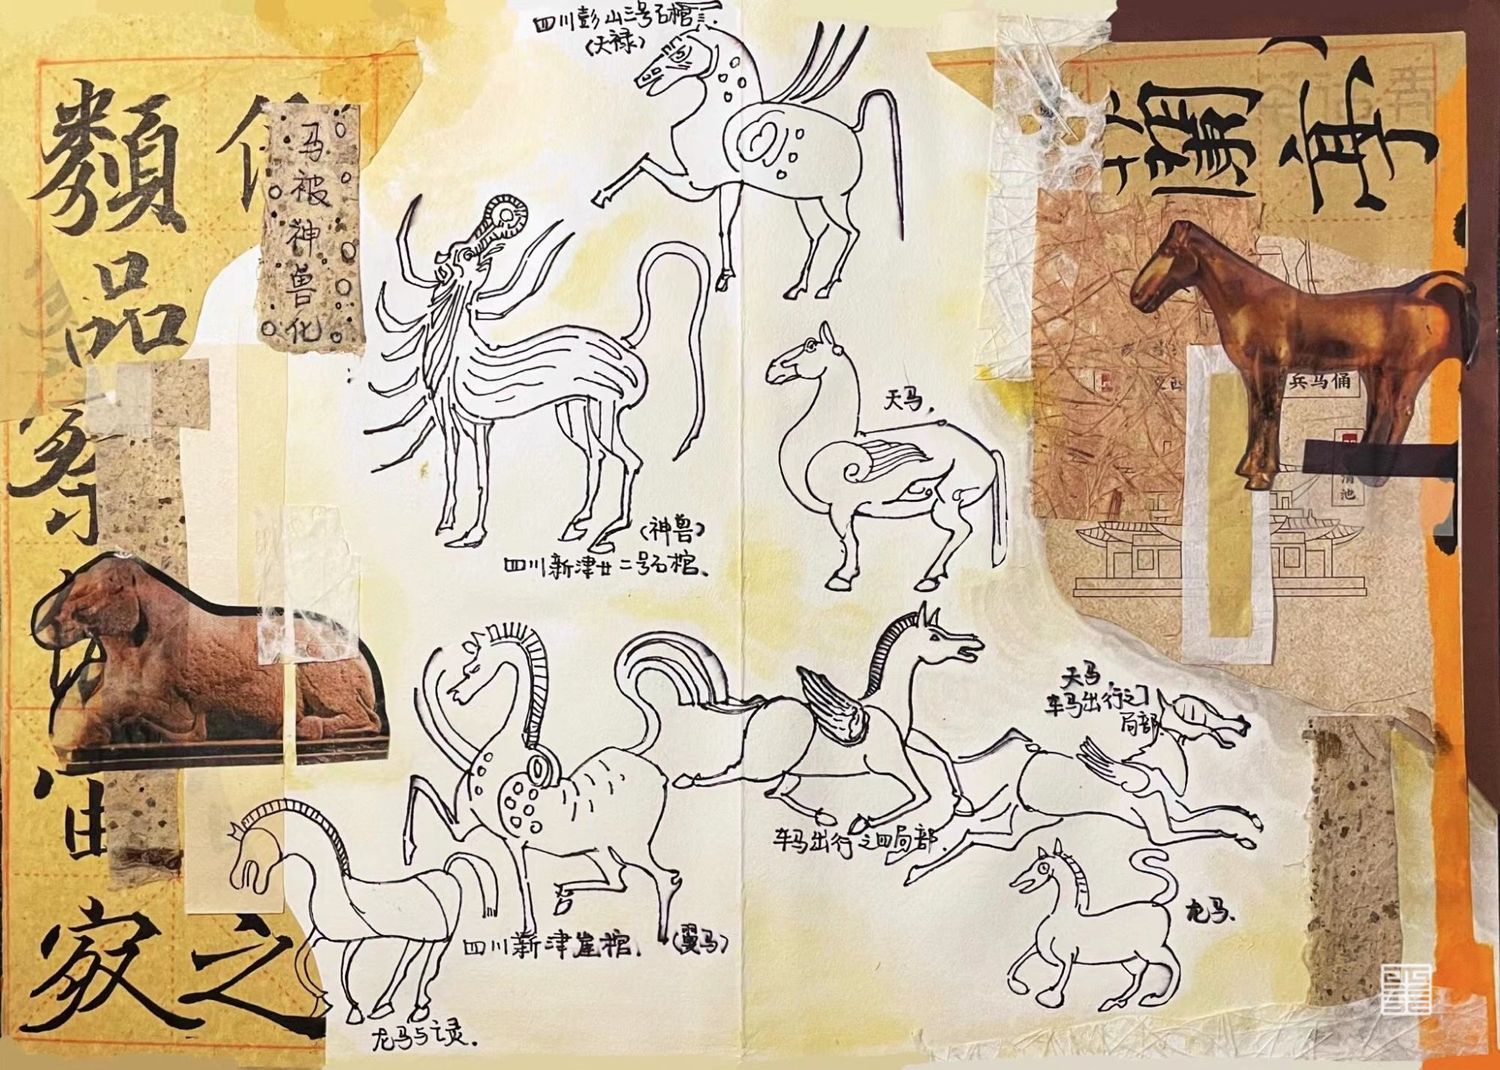 四川彭山三号石棺
（天禄）
類
品
之
马
被
神
兽
化
蘭
亭
兵马俑
天马.
（神兽）
四川新津廿二号石棺.
天马
车马出行之
局部
车马出行之四局部.
四川新津崖棺.
（翼马）
龙马.
龙马与